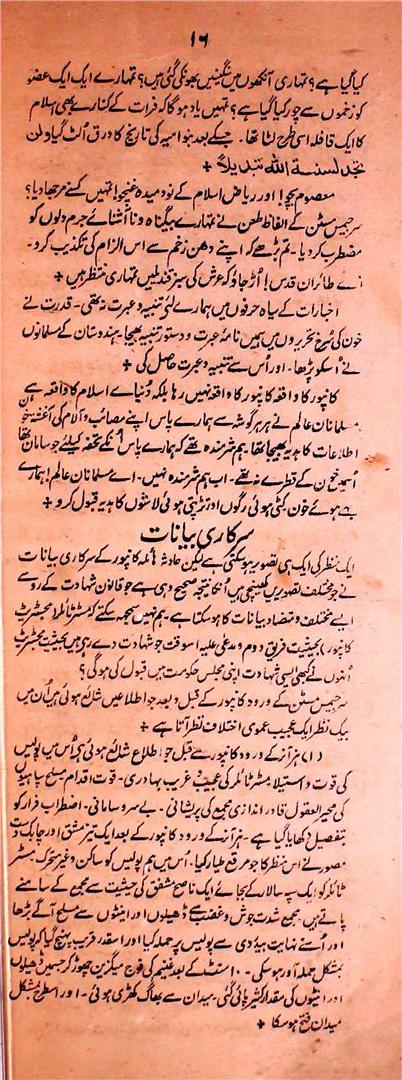 ۱۶
کیا گیا ہے؟ تمہاری آنکھوں میں سنگینیں بھونکی گئی ہیں؟ تمہارے ایک ایک عضو
کو زخموں سے چور کیا گیا ہے؟ تمہیں یاد ہوگا کہ فرات کے کنارے بھی اسلام
کا ایک قافلہ اسی طرح لٹا تھا۔ جسکے بعد بنو امیہ کی تاریخ کا ورق الٹ گیا ولن
تجد لسنة اللہ تبدیلا +
معصوم بچو! اور ریاض اسلام کے نودمیدہ غنچو! تمہیں کسنے مرجھا دیا؟
سر جیمس مسٹن کے الفاظ طعن نے تمہارے بیگناہ و ناآشنائے جرم دلوں کو
مضطرب کردیا۔ تم بڑھے کہ اپنے دھن زخم سے اس الزام کی تکذیب کرو۔
اے طائران قدس! اڑ جاؤ کہ عرش کی سبز قندیلیں تمہاری منتظر ہیں +
اخبارات کے سیاہ حرفوں میں ہمارے لئے تنبیہ و عبرت نہ تھی۔ قدرت نے
خون کی سرخ تحریروں میں ہمیں نامۂ عبرت و دستور تنبیہ بھیجا۔ ہندوستان کے مسلمانوں
نے اسکو پڑھا۔ اور اس سے تنبیہ و عبرت حاصل کی +
کانپور کا واقعہ کانپور کا واقعہ نہیں رہا بلکہ دنیاے اسلام کا واقعہ ہے
مسلمانان عالم نے ہر ہر گوشہ سے ہمارے پاس اپنے مصائب و آلام کی
اطلاعات کا ہدیہ بھیجا تھا۔ ہم شرمندہ تھے کہ ہمارے پاس انکے تحفہ کیلئے جو سامان تھا
اسمیں خون کے قطرے نہ تھے۔ اب ہم شرمندہ نہیں۔ اے مسلمانان عالم! ہمارے
بہے ہوئے خون کٹی ہوئی رگوں اور تڑپتی ہوئی لاشوں کا ہدیہ قبول کرو +
سرکاری بیانات
ایک منظر کی ایک ہی تصویر ہوسکتی ہے لیکن حادثہ ہائلہ کانپور کے سرکاری بیانات
نے جو مختلف تصویریں کھینچی ہیں انکا نتیجہ صحیح وہی ہے جو قانون شہادت کے رو سے
ایسے مختلف و متضاد بیانات کا ہوسکتا ہے۔ ہم نہیں سمجھ سکتے کہ مسٹر ٹائلر (مجسٹریٹ
کانپور) بحیثیت فریق دوم و مدعی علیہ اسوقت جو شہادت دے رہے ہیں بحیثیت مجسٹریٹ
انہوں نے کبھی ایسی شہادت اپنی مجلس حکومت میں قبول کی ہوگی؟
سر جیمس مسٹن کے ورود کانپور کے قبل و بعد جو اطلاعیں شائع ہوئی ہیں ان میں
بیک نظر ایک عجیب عمومی اختلاف نظر آتا ہے +
(۱) ہزآنر کے ورود کانپور سے قبل جو اطلاع شائع ہوئی ہے اس میں پولیس
کی قوت و استیلا مسٹر ٹائلر کی عجیب غریب بہادری۔ قوت اقدام مسلح سپاہیوں
کی محیر العقول قادر اندازی مجمع کی پریشانی۔ بے سروسامانی۔ اضطراب فرار کو
بتفصیل دکھایا گیا ہے۔ ہزآنر کے ورود کانپور کے بعد ایک تیز مشق اور چابک دست
مصور نے اس منظر کا جو مرقع طیار کیا۔ اس میں ہم پولیس کو ساکن و غیر متحرک مسٹر
ٹائلر کو ایک سپہ سالار کے بجائے ایک ناصح مشفق کی حیثیت سے مجمع کے سامنے
پاتے ہیں۔ مجمع شدت جوش و غضب سے ڈھیلوں اور اینٹوں سے مسلح آگے بڑھا
اور اسنے نہایت بیدردی سے پولیس پر حملہ کیا اور اسقدر قریب پہنچ گیا کہ پولیس
بمشکل حملہ آور ہوسکی۔ ۱۰ منٹ کے بعد غنیم کی فوج میگزین چھوڑ کر جسمیں ڈھیلوں
اور اینٹوں کی مقدار کثیر پائی گئی۔ میدان سے بھاگ کھڑی ہوئی۔ اور اسطرح بمشکل
میدان فتح ہوسکا +